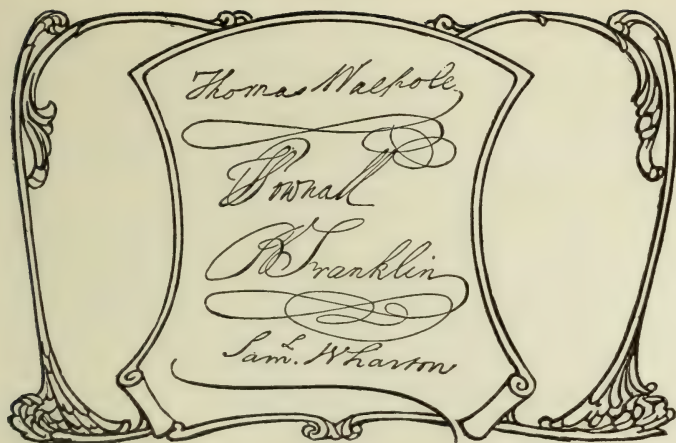 Thomas Walpole
T Pownall
B Franklin
Saml. Wharton